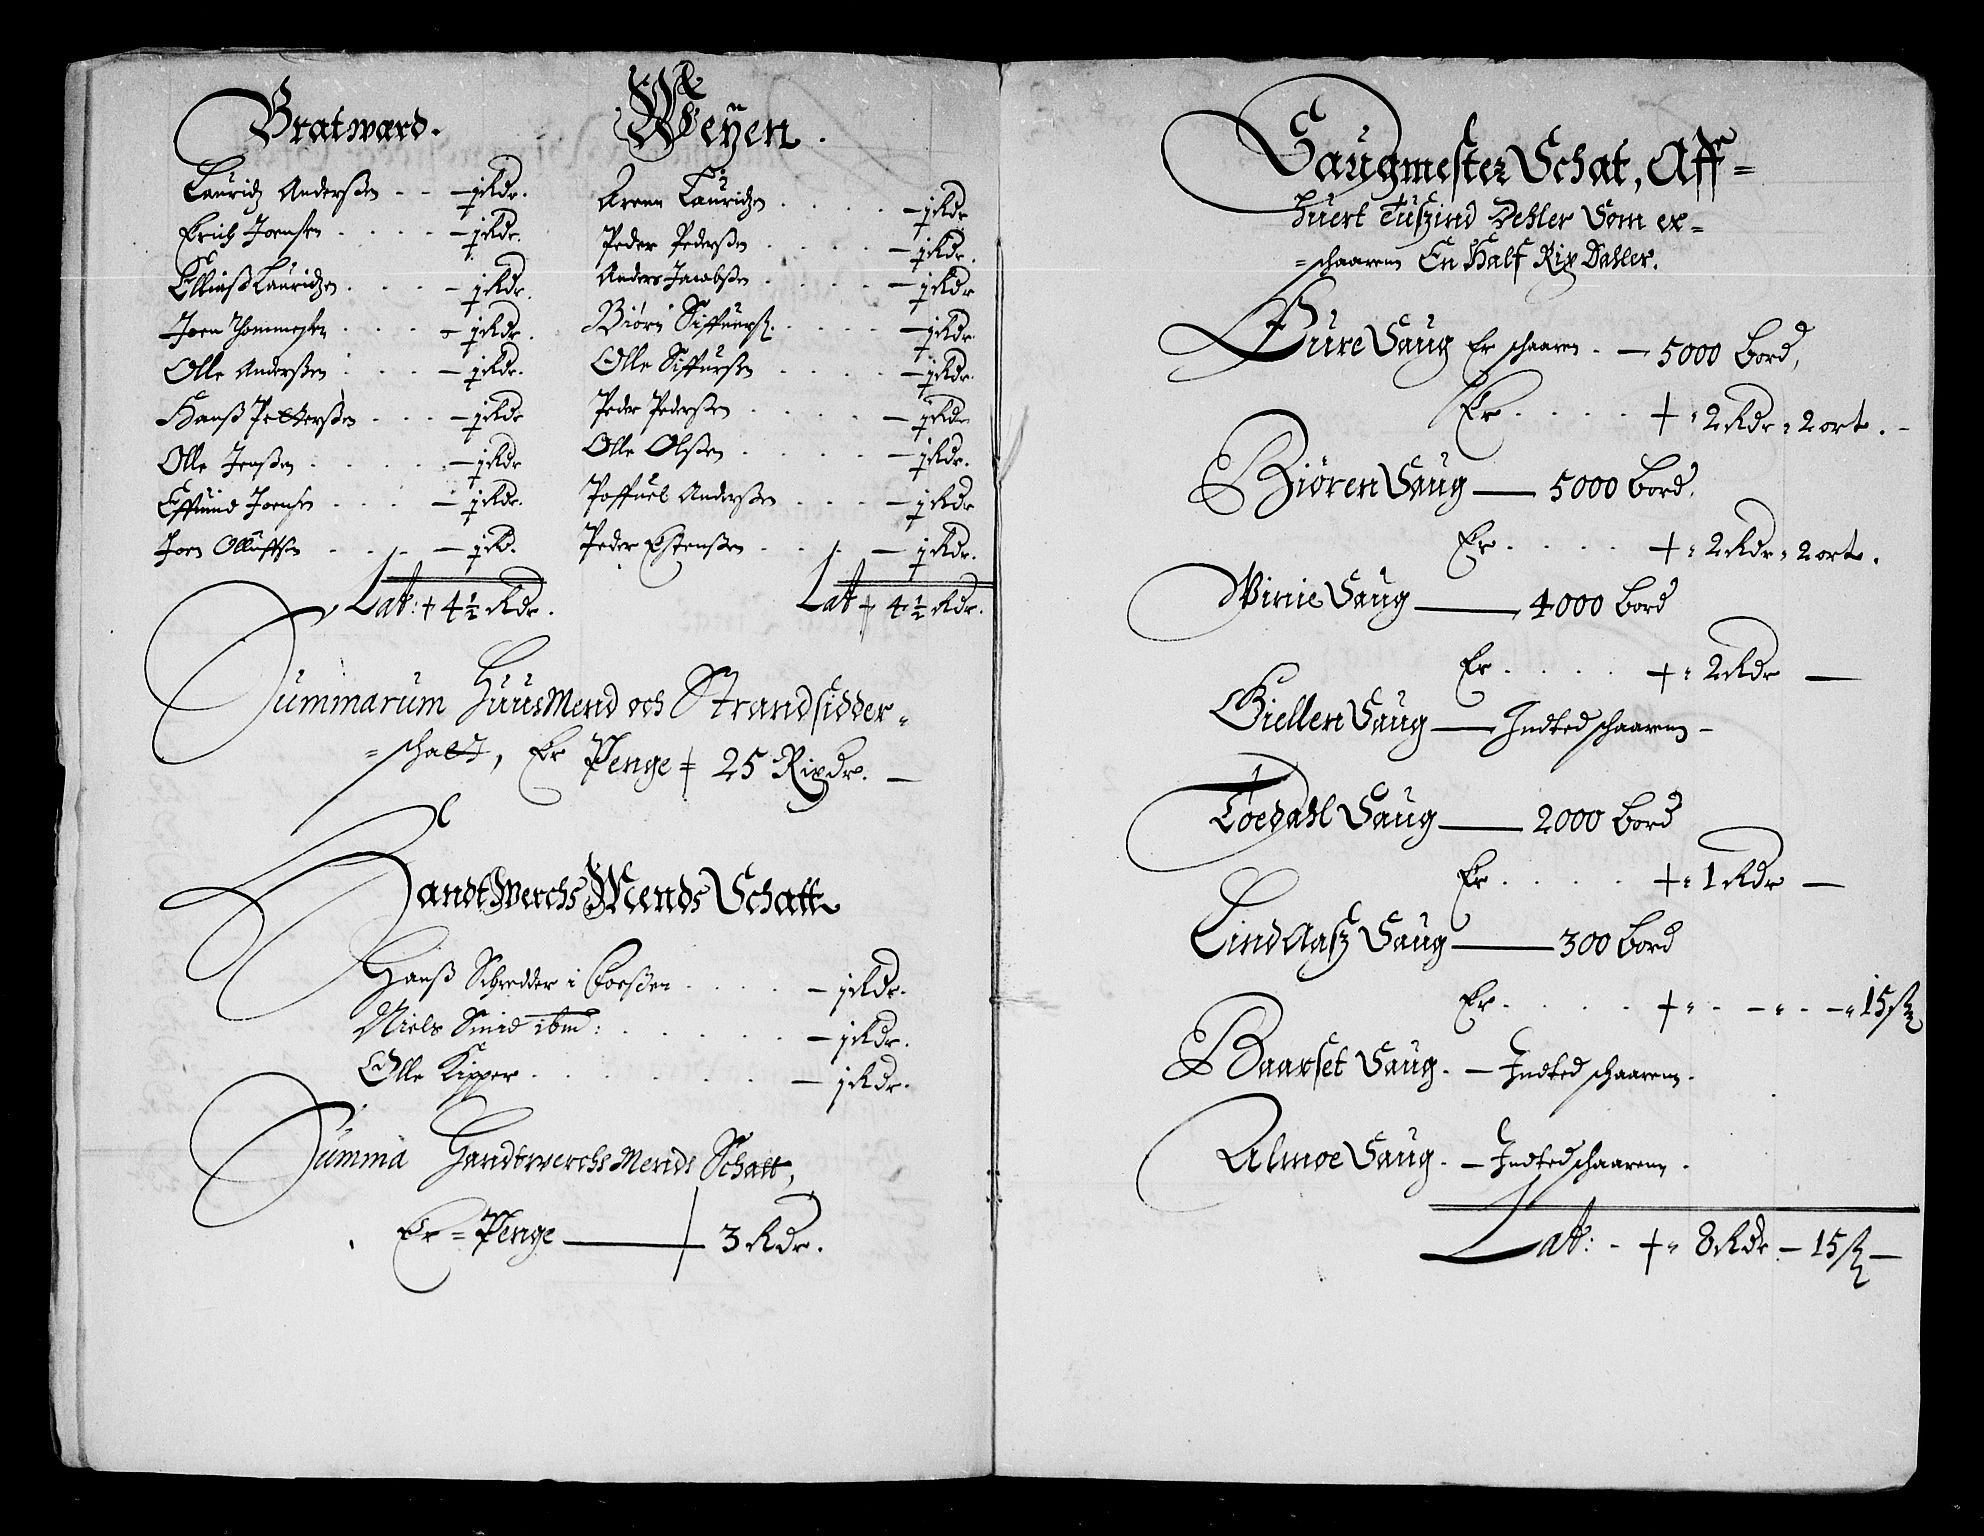 Bratwærd.
Lauridz Anderßen - - ½ Rdr.
Erich Joensen . . . ½ Rdr.
Elliaß Lauridzen . . . ½ Rdr.
Joen Thommesen . . . ½ Rdr.
Olle Anderßen . . . ½ Rdr.
Hanß Petterßen . . . ½ Rdr
Olle Jenßen . . . ½ Rdr
Effuind Joensen . . . ½ Rdr.
Joen Olluffsen . . . ½ Rd.
Lat: + 4½ Rdr.
Weÿen.
Arenn Lauridzen . . . ½ Rdr
Peder Pederßen . . . ½ Rdr.
Anders Jacobßen . . . ½ Rdr
Biörn Siffuerß. . . . ½ Rdr
Olle Siffurßen . . . ½ Rdr.
Peder Pederßen . . . ½ Rdr
Olle Olßen . . . ½ Rdr.
Poffuel Anderßen . . . ½ Rdr
Peder Estenßen . . . ½ Rdr.
Lat + 4½ Rdr.
Summarum HuusMend och Strandsidder=
=schatt, Er Penge + 25 Rixdr. —
HandtWerchs Mends Schatt
Hanß Schredder i Eoeßen . . . — 1 Rdr.
Niels Smid ibm: . . . — 1 Rdr.
Olle Kipper . . . — 1 Rdr.
Summa Handtwerchs Mends Schatt,
Er = Penge — + 3 Rdr.
Saugmester Schat, Aff=
huert Tuszind Dehler Som ex=
=schaarenn En Half Rix Daller.
Eure Saug Er schaaren . — 5000 Bord,
Er . . . . + " 2 Rdr " 2 ort. -
Biören Saug — 5000 Bord.
Er . . . . + " 2 Rdr " 2 ort.
Winie Saug — 4000 Bord
Er . . . . + " 2 Rdr —
Giellen Saug — Indted schaarenn -
Töedahl Saug — 2000 Bord
Er . . . . + " 1 Rdr —
Lind Aasz Saug — 300 Bord
Er . . . . + " . — " . — " 15 ß
Baarset Saug . — Indted schaarenn .
Almoe Saug . — Indted schaarenn .
Lat: - + " 8 Rdr — 15 ß —